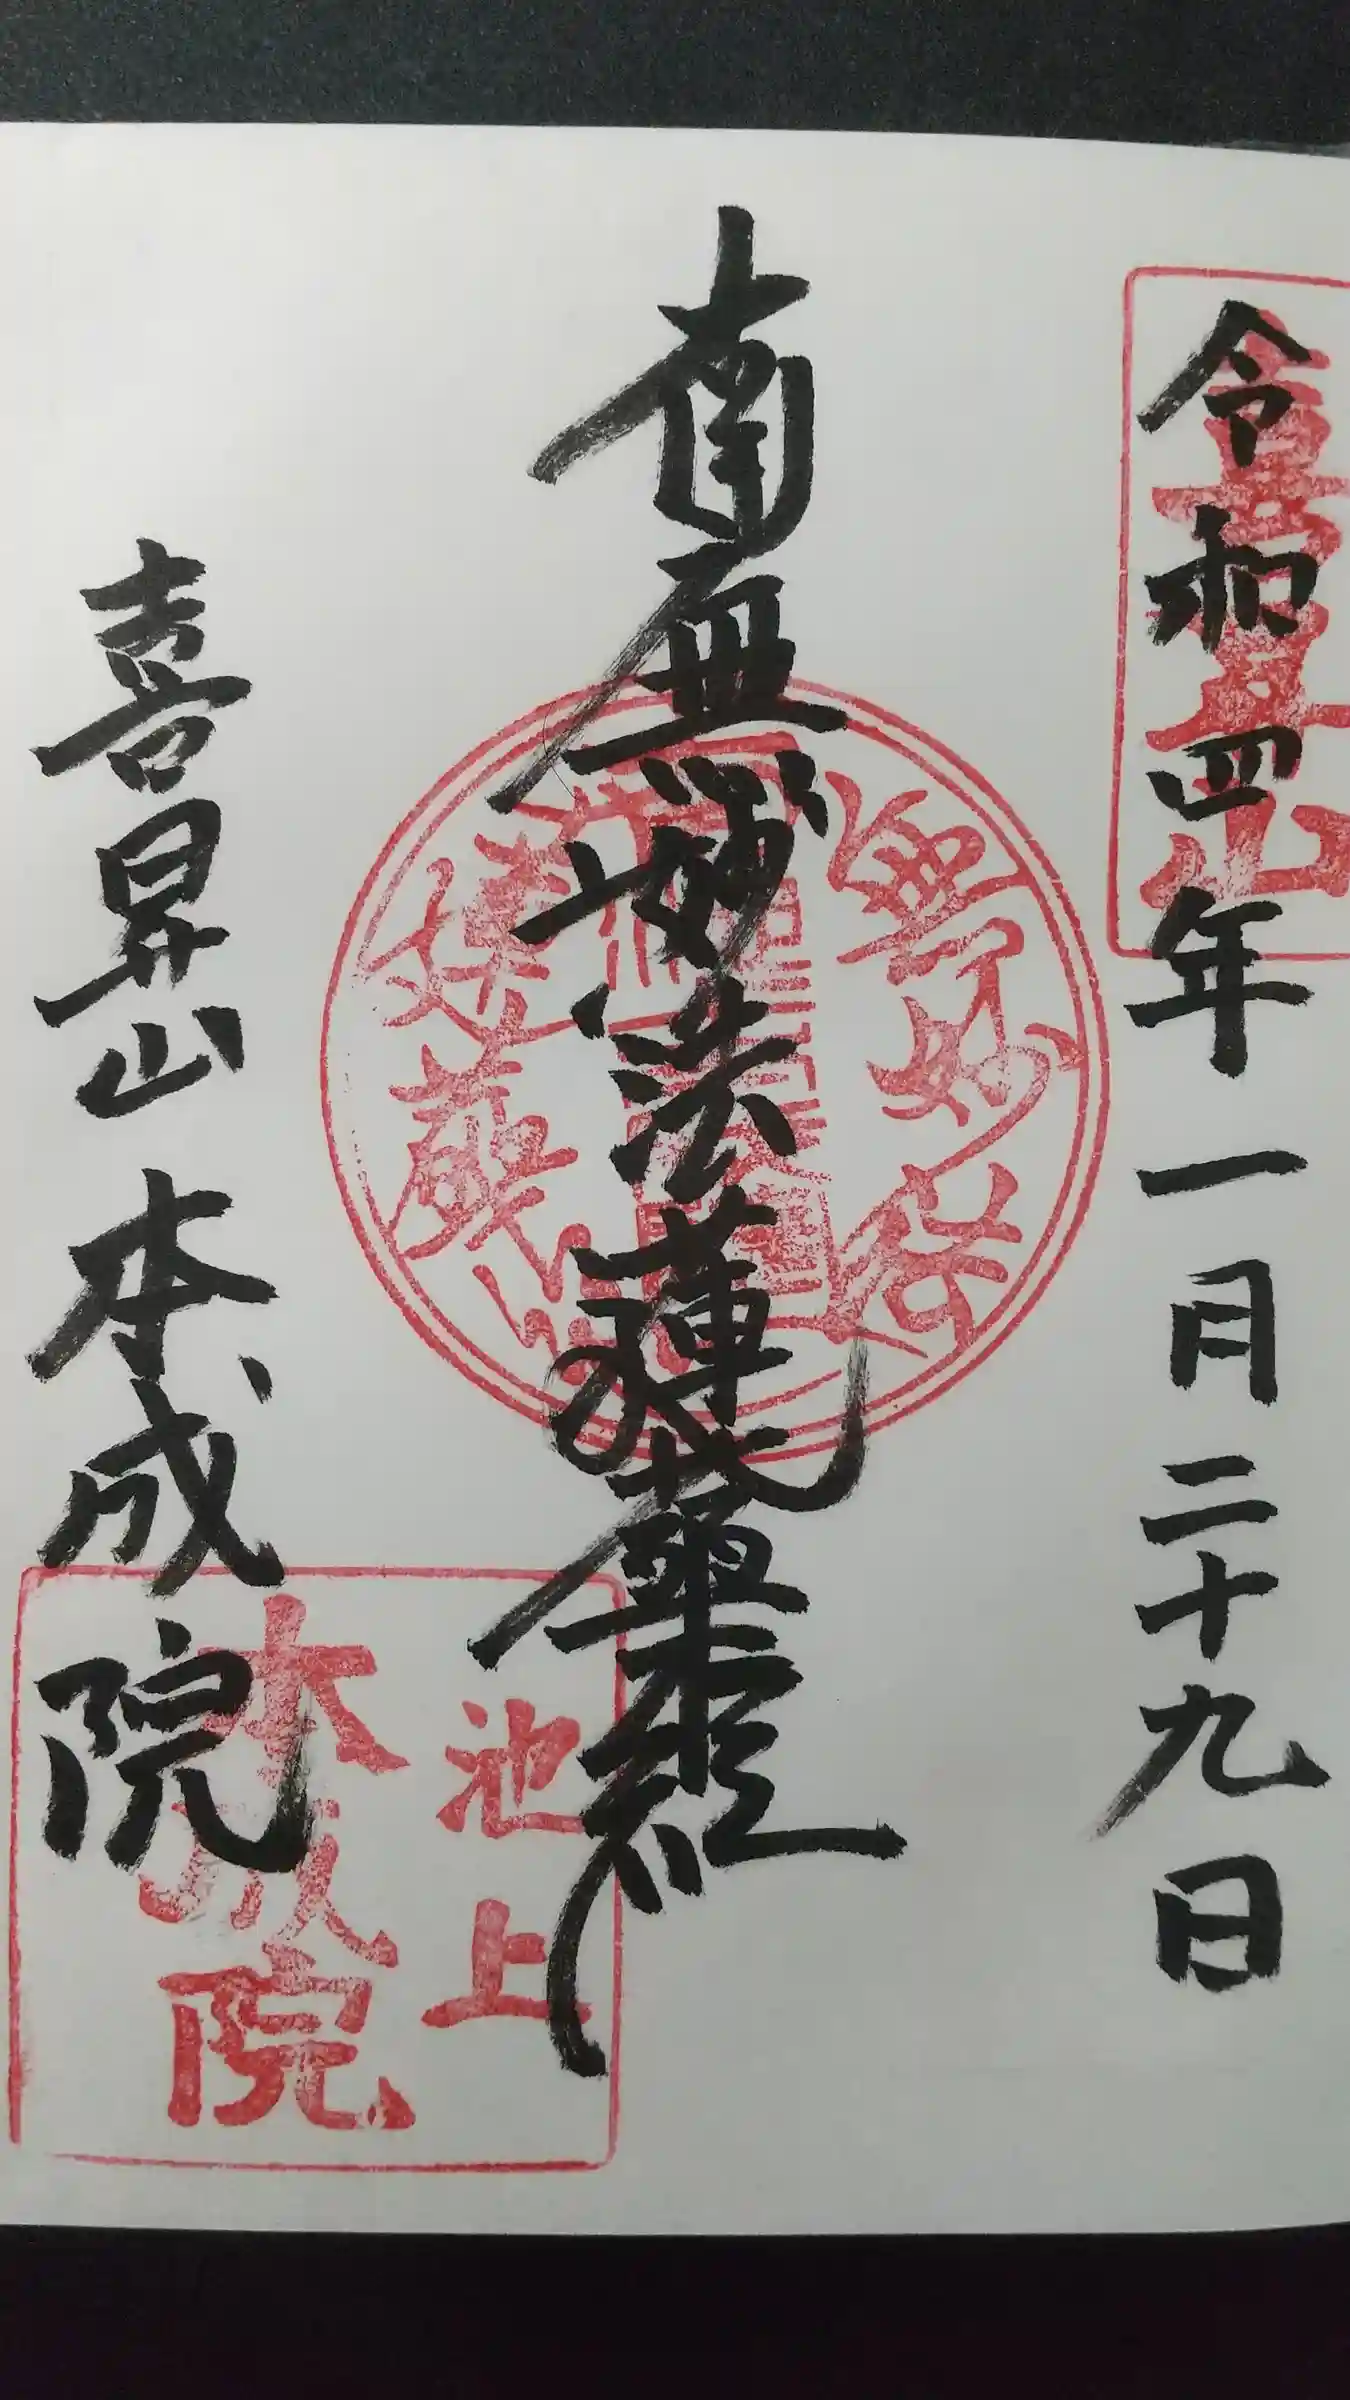 令和四年一月二十九日
喜昇山
南無妙法蓮華経
喜昇山 本成院
池上
本成院